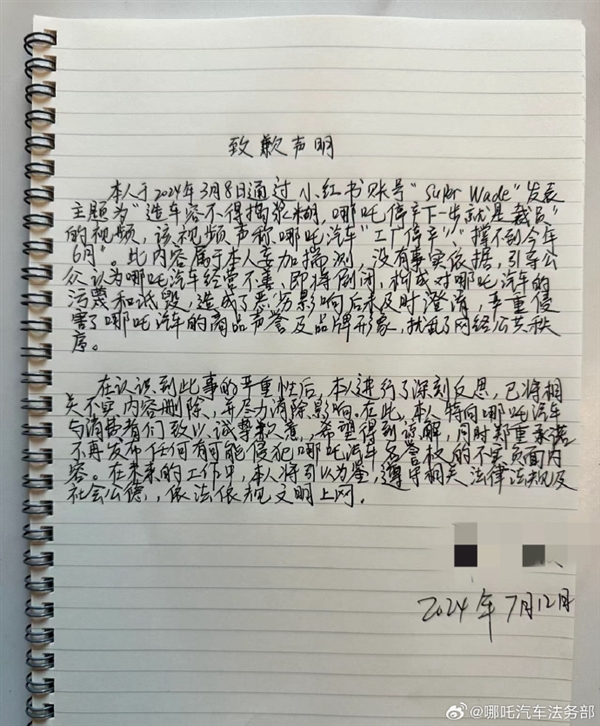 致歉声明
本人于2024年3月8日通过小红书账号“Super Wade”发表
主题为“造车容不得捣浆糊,哪吒停产下一步就是裁员”
的视频,该视频声称哪吒汽车“工厂停产”,“撑不到今年
6月”。此内容属于本人妄加揣测,没有事实依据,引导公
众认为哪吒汽车经营不善、即将倒闭,构成对哪吒汽车的
污蔑和诋毁,造成了恶劣影响后未及时澄清,严重侵
害了哪吒汽车的商品声誉及品牌形象,扰乱了网络公共秩
序。
在认识到此事的严重性后,本人进行了深刻反思,已将相
关不实内容删除,并尽力消除影响。在此,本人特向哪吒汽车
与消费者们致以诚挚歉意,希望得到谅解,同时郑重承诺
不再发布任何有可能侵犯哪吒汽车名誉权的不实负面内
容。在未来的工作中,本人将引以为鉴,遵守相关法律法规及
社会公德,依法依规文明上网。
2024年7月12日
@哪吒汽车法务部